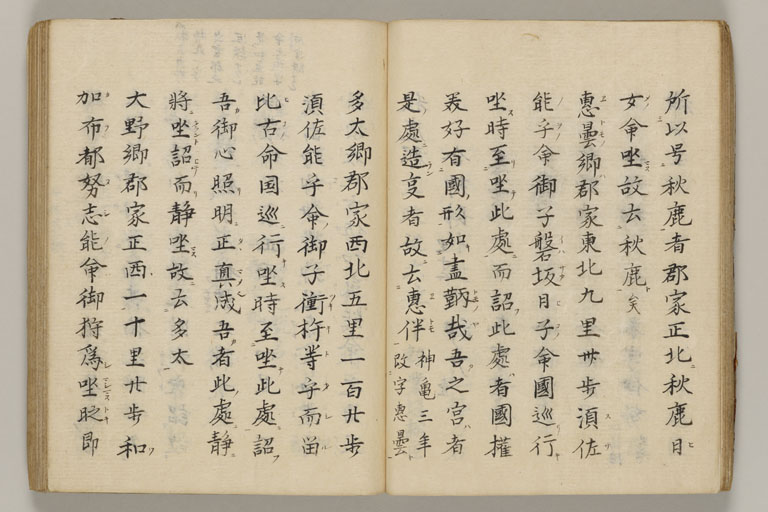 所以号秋鹿者郡家正北秋鹿日
女命坐故云秋鹿矣
恵曇郷郡家東北九里卅歩須佐
能乎命御子磐坂日子命國巡行
坐時至坐此處而詔此處者國権
美好有國形如畫鞆哉吾之宮者
是處造事者故云恵伴
神亀三年
改字恵曇
多太郷郡家西北五里一百廿歩
須佐能乎命御子衝杵等乎而留
比古命国巡行坐時至坐此處詔
吾御心照明正真成吾者此處静
将坐詔而静坐故云多太
大野郷郡家正西一十里廿歩和
加布都努志能命御狩為坐时即